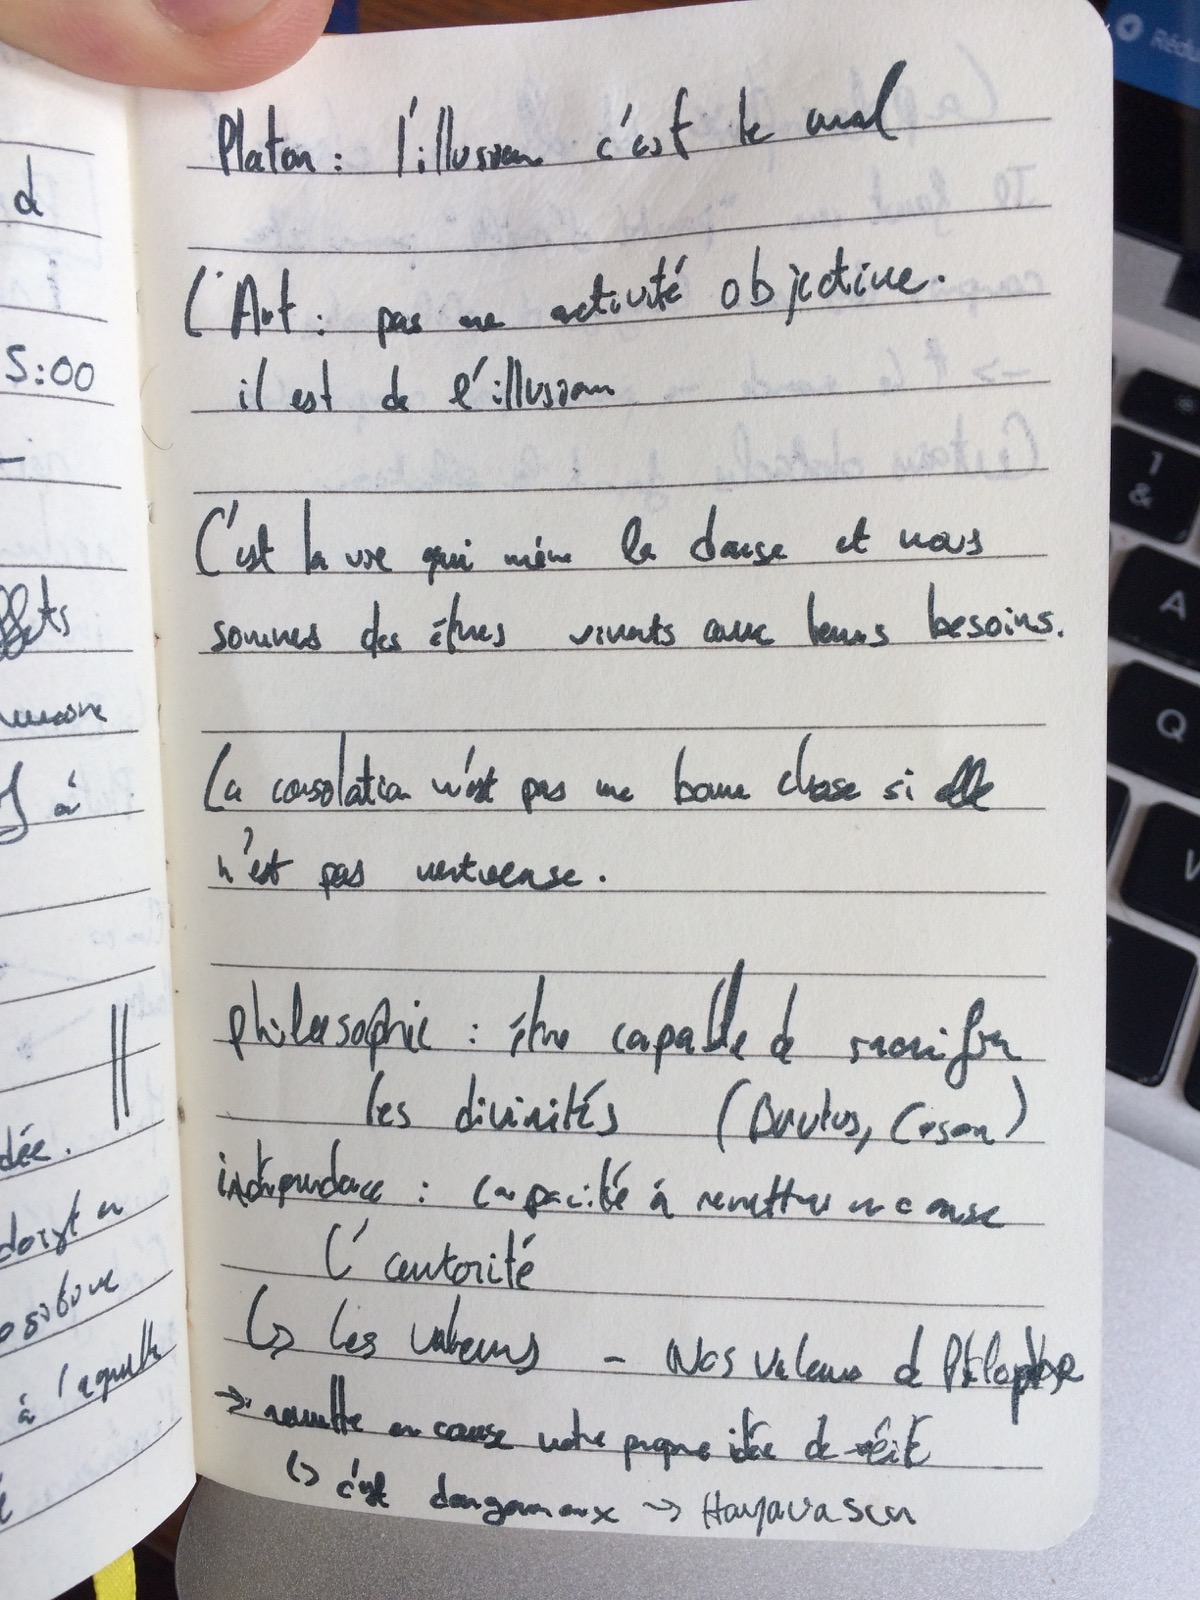 Platon : l'illusion c'est le mal
L'Art : pas une activité objective.
il est de l'illusion
C'est la vie qui mène la danse et nous
sommes des êtres vivants avec leurs besoins.
La consolation n'est pas une bonne chose si elle
n'est pas vertueuse.
philosophie : être capable de sacrifier
les divinités (Brutus, Cesar)
indépendance : capacité à remettre en cause
L'autorité
↳ les valeurs - Nos valeurs de
→ remettre en cause notre propre idée de
↳ c'est dangereux →
d
5:00
à
dée.
à laquelle
Rédu
1
&
A
Q